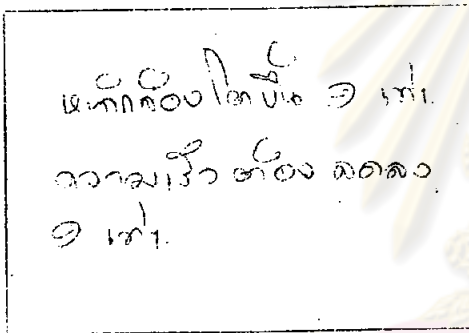 หน้ากล้องโตขึ้น ๑ เท่า.
ความเร็วต้องลดลง
๑ เท่า.